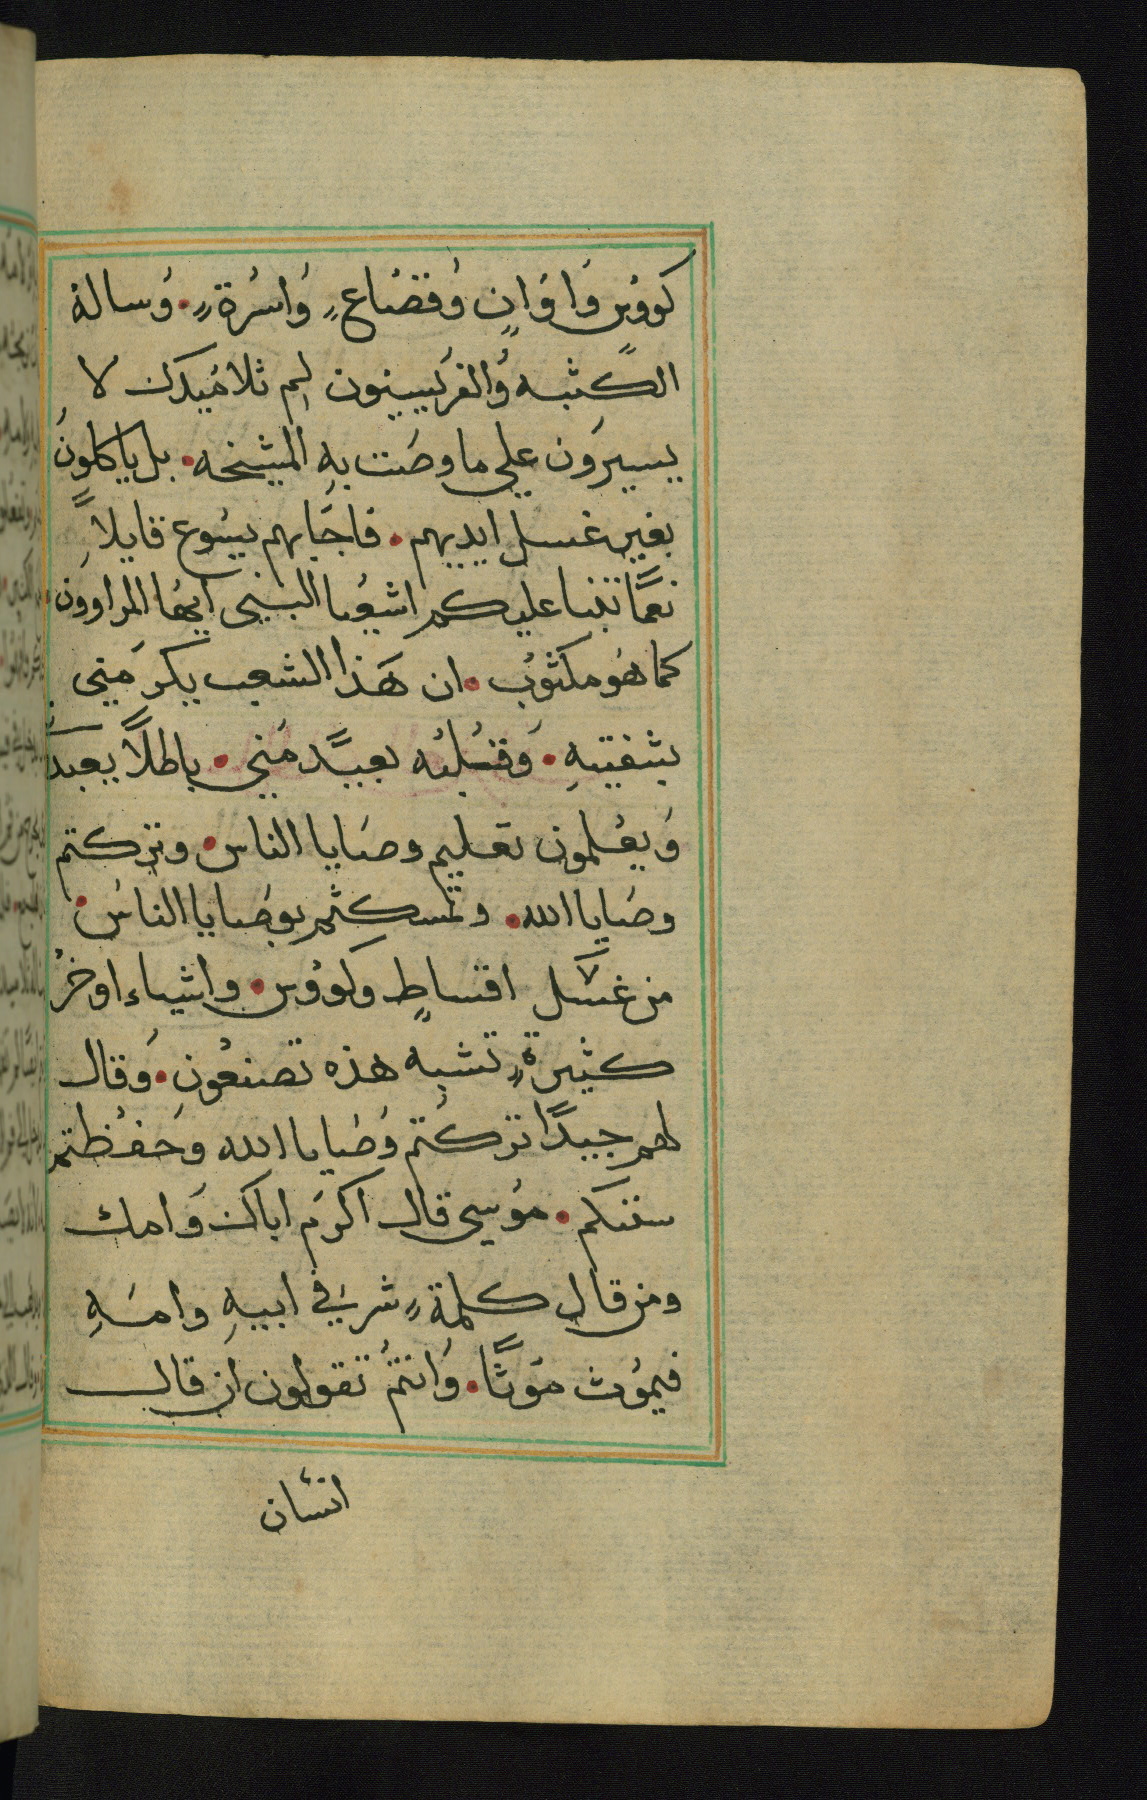 كووُس وَاوَانٍ وَقصَاعٍ وَاسُرةٍ. وَسالهُ
الكَتبه وَالفرَيسِيون لم ثلامَيدك لا
يسيرَون علي ما وصَت بهِ المشيخه. بل ياكلونَ
بغير غسل ايديهم. فاجَابهم يسَوع قايلاً
نعمَّا تنبا عليكم اشيعُيا النبي ايهُا المراوون
كما هُو مكثوُب. ان هَذا الشعب يكرَمني
بشفتيهِ. وَقلبُه بعيدٌ مَني. باطلاً يعبدَ
وَيعُلمون تعَليم وصَايا الناس. وتركتم
وصَايا الله. وتمسكثم بوصَايا الناسُ.
من غسَل اقساطٍ وكووُس. واشياء اوخرُ
كثيرةٍ تشبه هذه تصنعُون. وَقال
لهم جيدًا تركتُم وَصَايا الله وَحَفُظتم
سننكم. مُوسي قال اكرَم اباكَ وَامك
ومن قال كلمةٍ شر في ابيهِ وامَهِ
فيموُث مَوثًا. وَانتمُ تقولون ان قال
انسَان